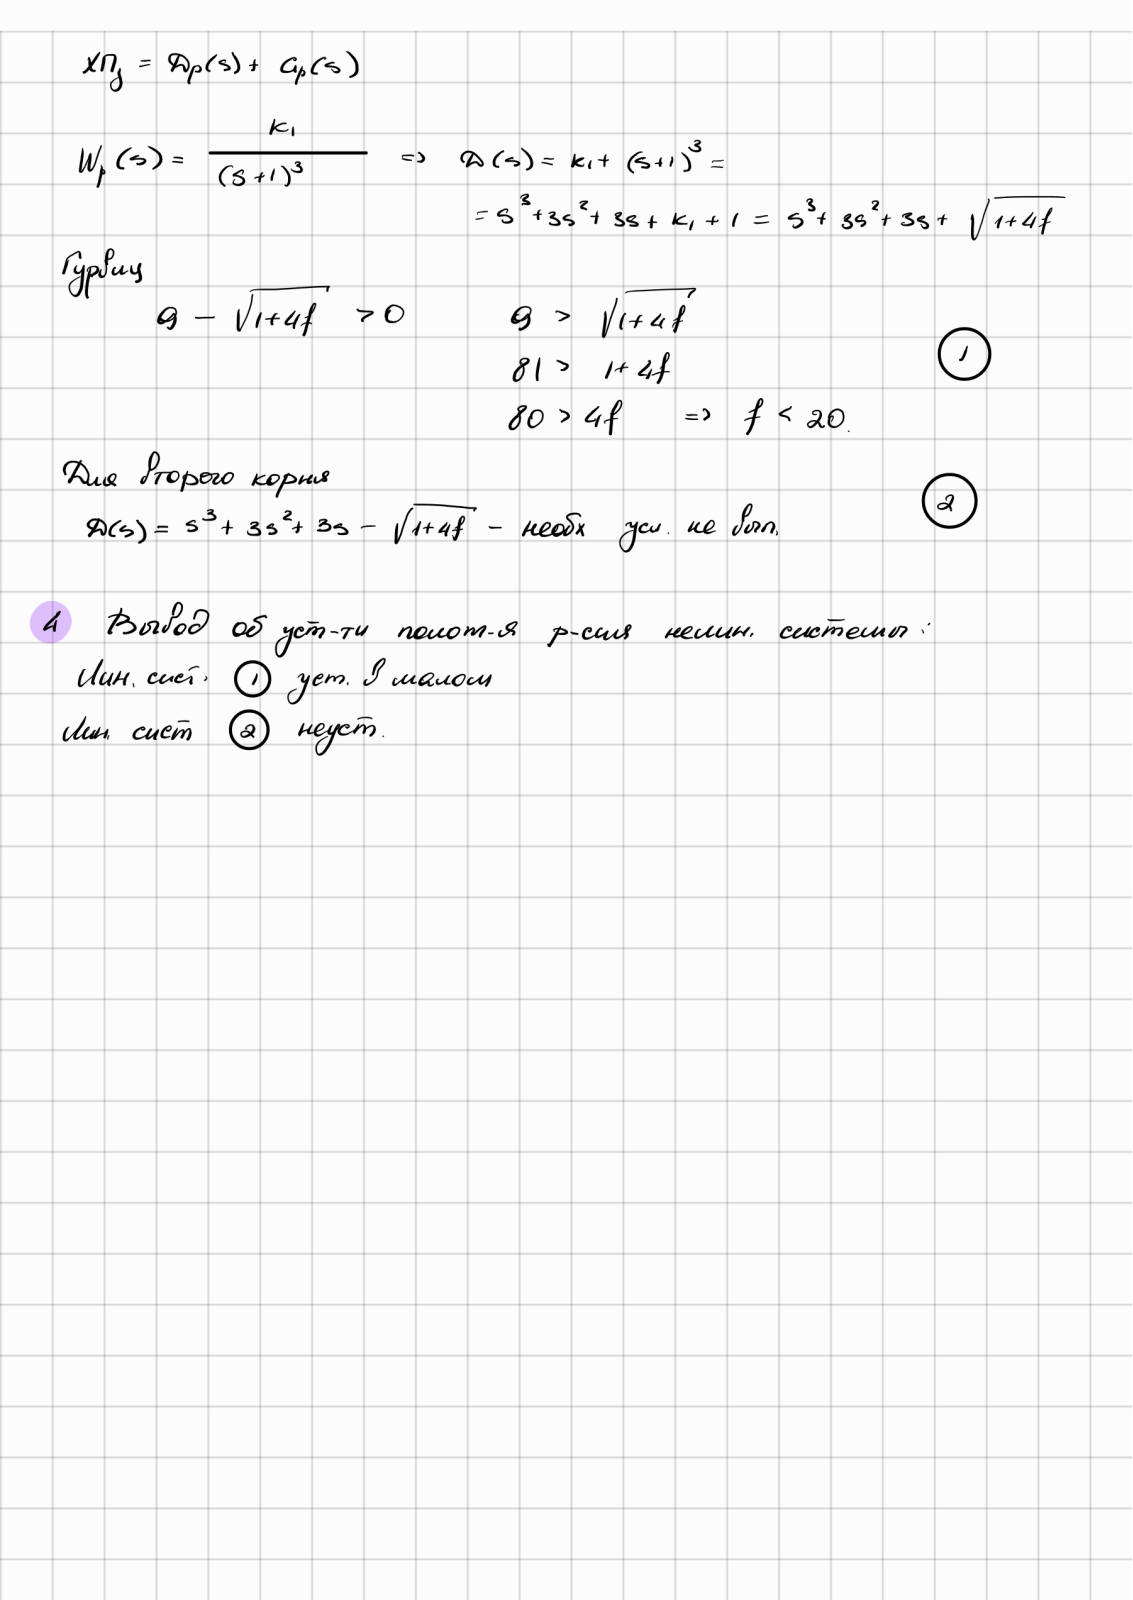 ХПз = Dp(s) + Gp(s)
Wp(s) = k₁ / (s+1)³ => D(s) = k₁ + (s+1)³ =
= s³ + 3s² + 3s + k₁ + 1 = s³ + 3s² + 3s + √(1+4f)
Гурвиц
9 − √(1+4f) > 0 9 > √(1+4f)
81 > 1+4f ①
80 > 4f => f < 20.
Для второго корня
D(s) = s³ + 3s² + 3s − √(1+4f) − необх усл. не вып. ②
4 Вывод об уст-ти полож-я р-сия нелин. системы:
Лин. сист. ① уст. в малом
Лин. сист ② неуст.